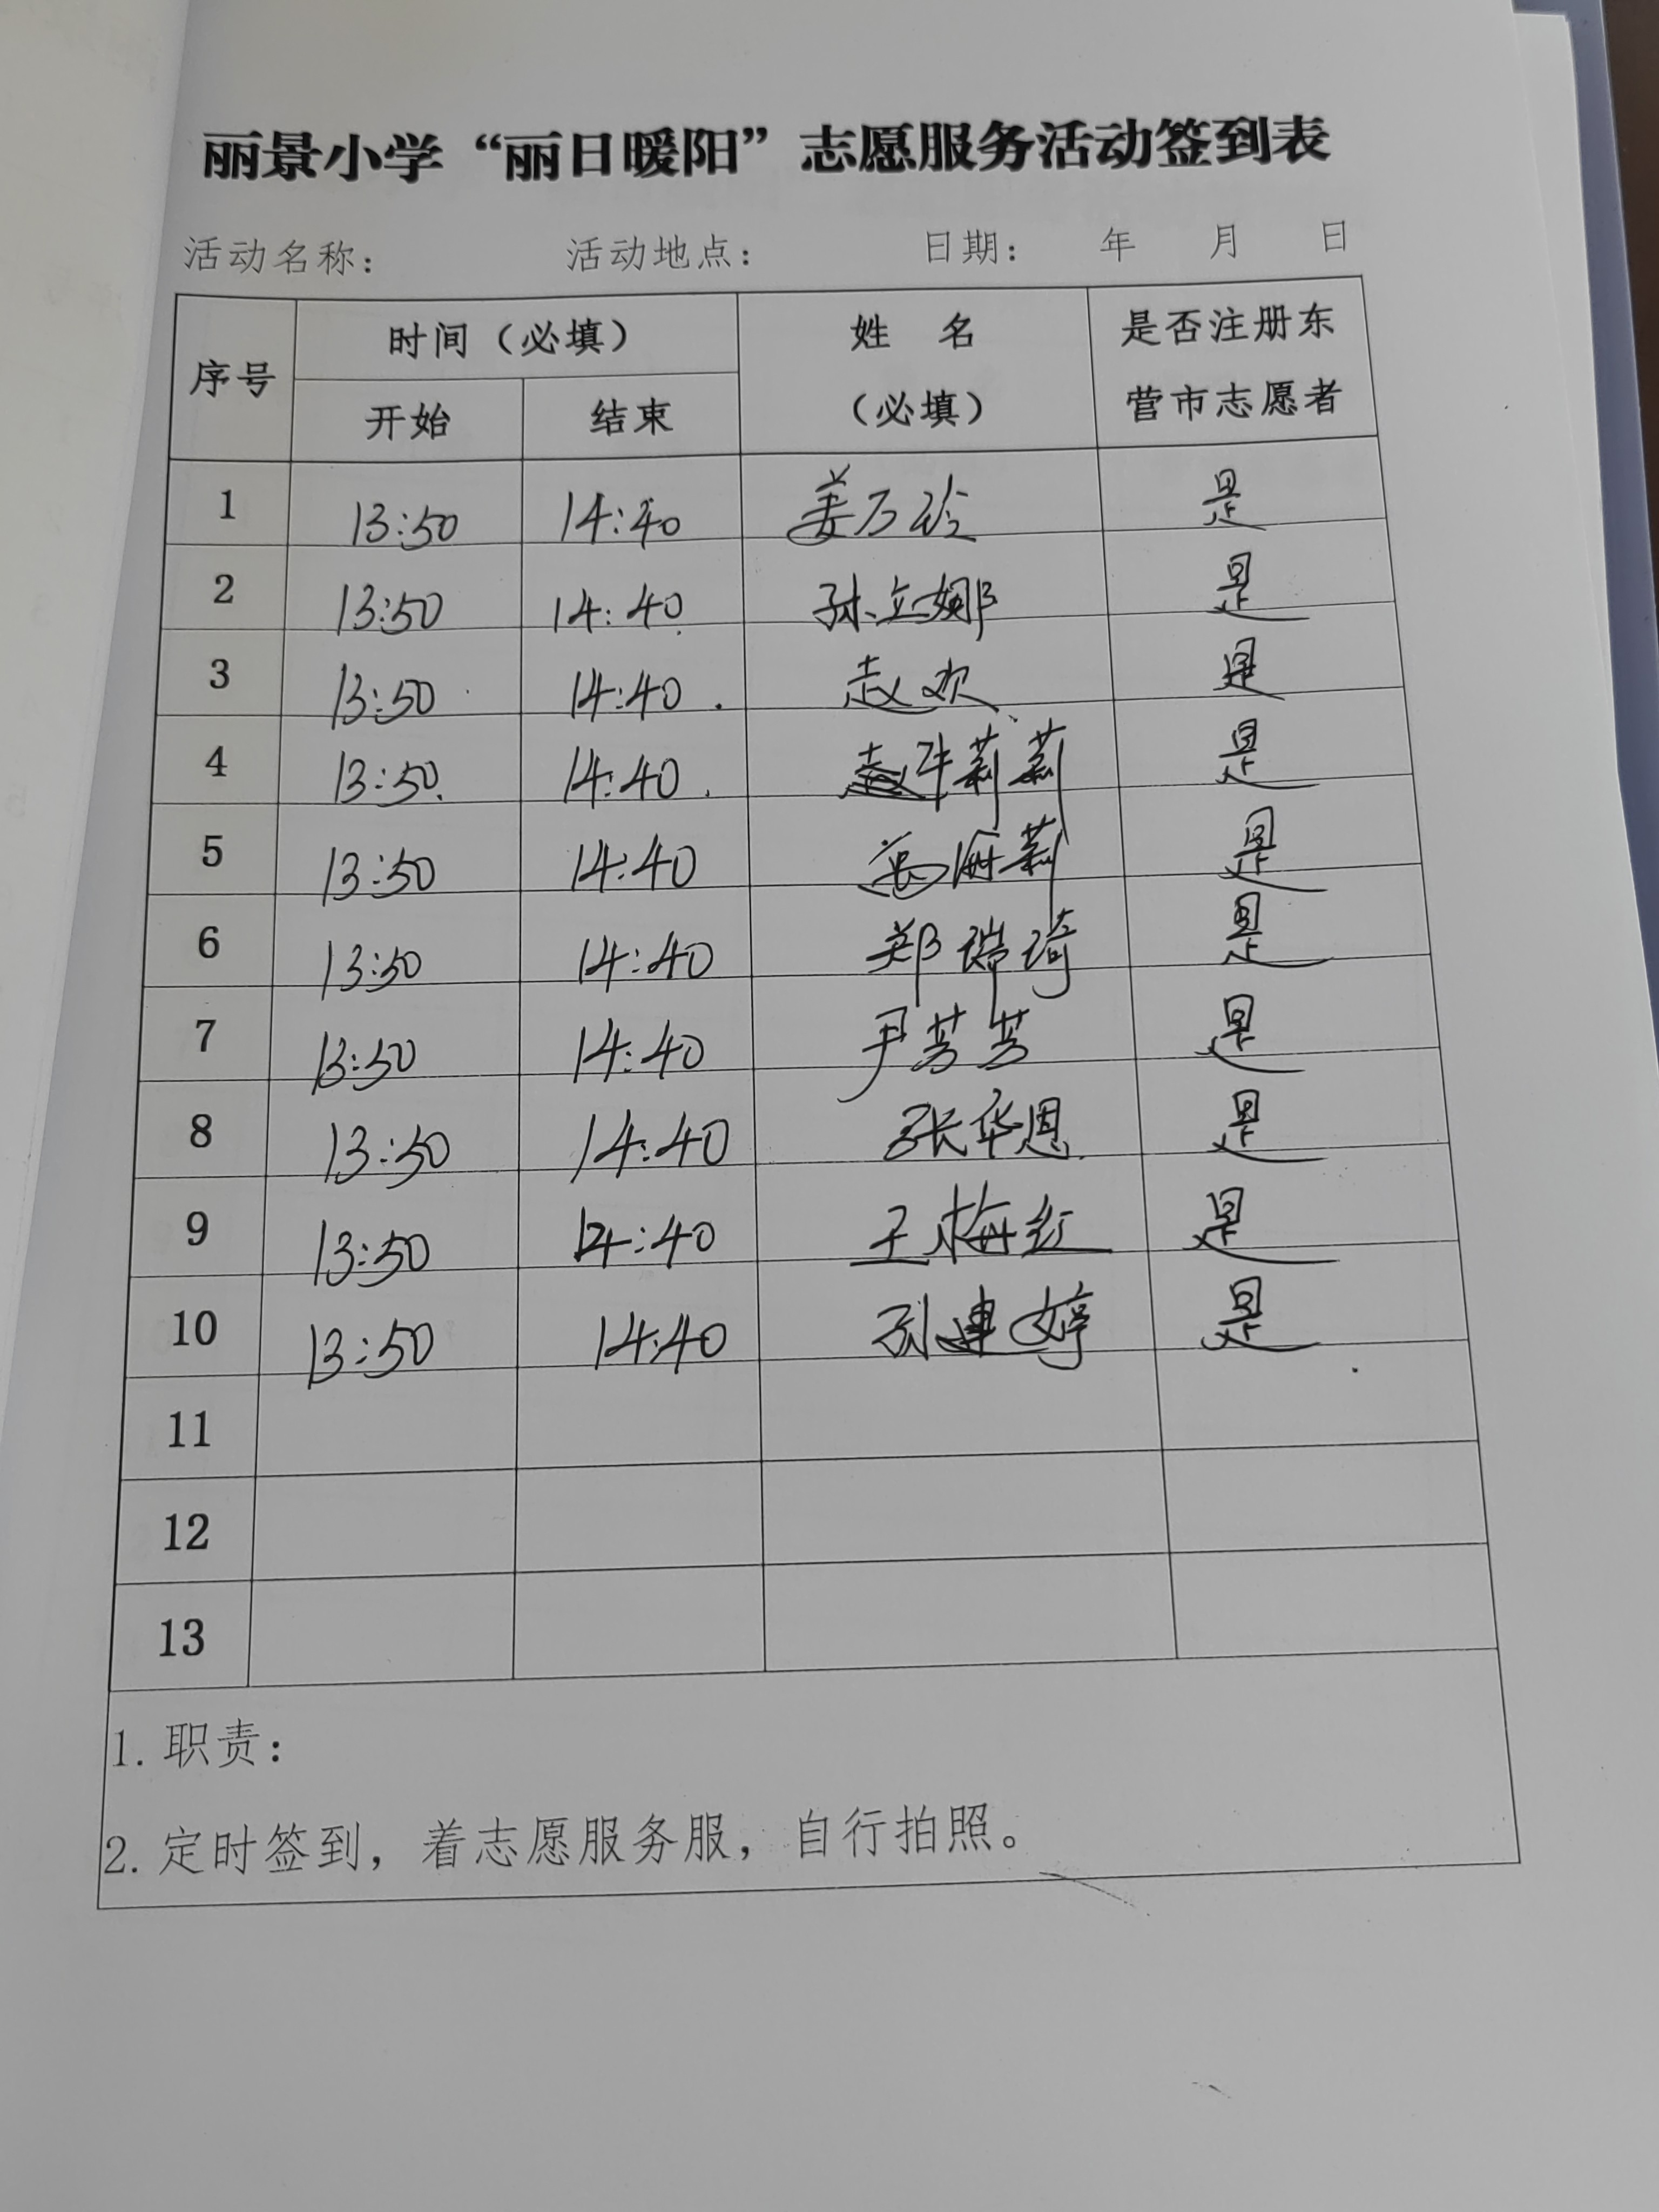 丽景小学“丽日暖阳”志愿服务活动签到表
活动名称： 活动地点： 日期： 年 月 日
序号 时间（必填） 姓 名（必填） 是否注册东营市志愿者
开始 结束
1 13:50 14:40 姜万玲 是
2 13:50 14:40 孙立娜 是
3 13:50 14:40 赵欢 是
4 13:50 14:40 牛莉莉 是
5 13:50 14:40 莉 是
6 13:50 14:40 郑瑞琦 是
7 13:50 14:40 尹芳芳 是
8 13:50 14:40 张华恩 是
9 13:50 14:40 王梅红 是
10 13:50 14:40 孙建婷 是
11
12
13
1. 职责：
2. 定时签到，着志愿服务服，自行拍照。